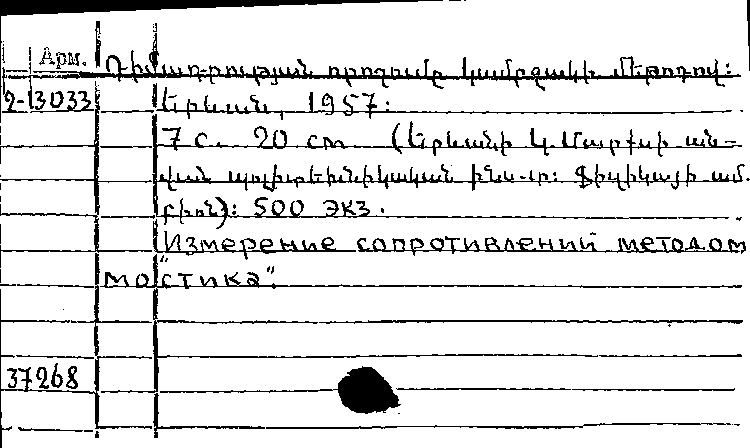 Арм.
Դիմադրության որոշումը կամրջակի մեթոդով։
2-13033
Երևան, 1957։
7 с. 20 см (Երևանի Կ. Մարքսի ան-
վան պոլիտեխնիկական ինստ-տ։ Ֆիզիկայի ամ-
բիոն)։ 500 экз.
Измерение сопротивлений методом
"мостика".
37268